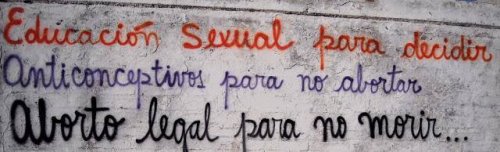 Educación Sexual para decidir
Anticonceptivos para no abortar
Aborto legal para no morir...